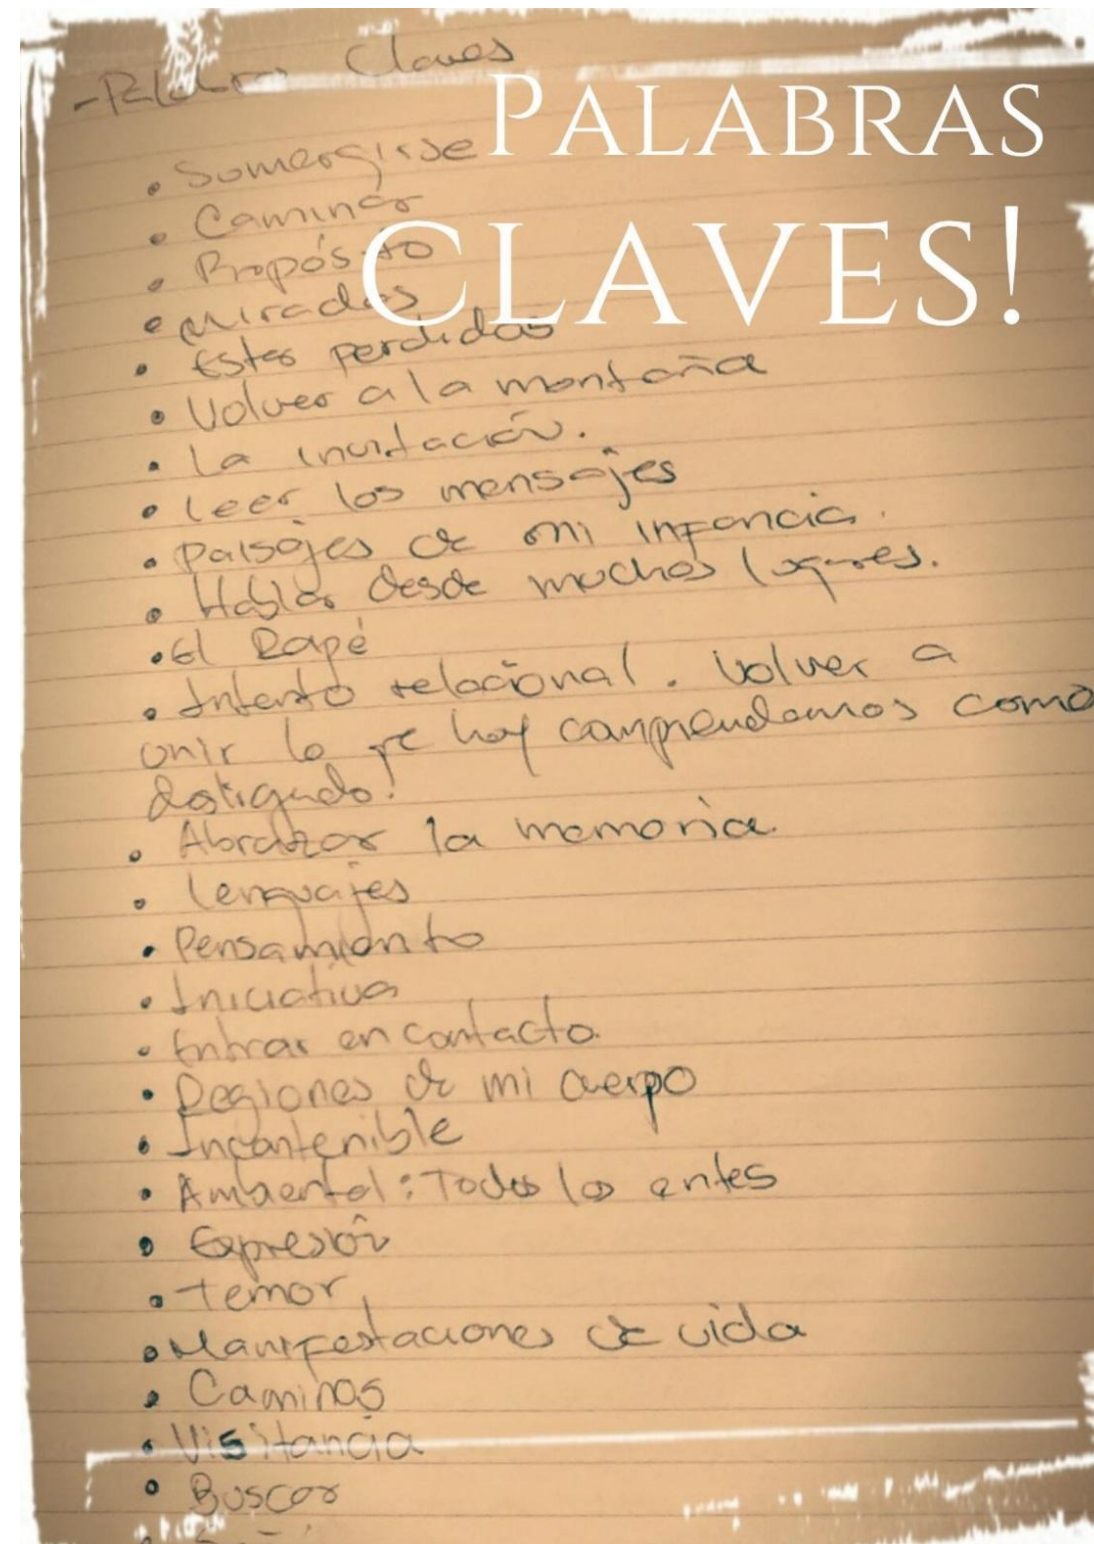 - Palabras Claves
PALABRAS
CLAVES!
• Somergirse
• Caminar
• Propósito
• miradas
• Estar perdidas
• Volver a la montaña
• La invitación.
• Leer los mensajes
• Paisajes de mi infancia.
• Hablar desde muchos lugares.
• El Rapé
• Intento relacional. Volver a
unir lo que hoy comprendemos como
• Abrazar la memoria
• Lenguajes
• Pensamiento
• Iniciativa
• Entrar en contacto.
• Regiones de mi cuerpo
• Incontenible
• Ambiental: Todos los entes
• Expresión
• Temor
• Manifestaciones de vida
• Caminos
• Visitancia
• Buscar